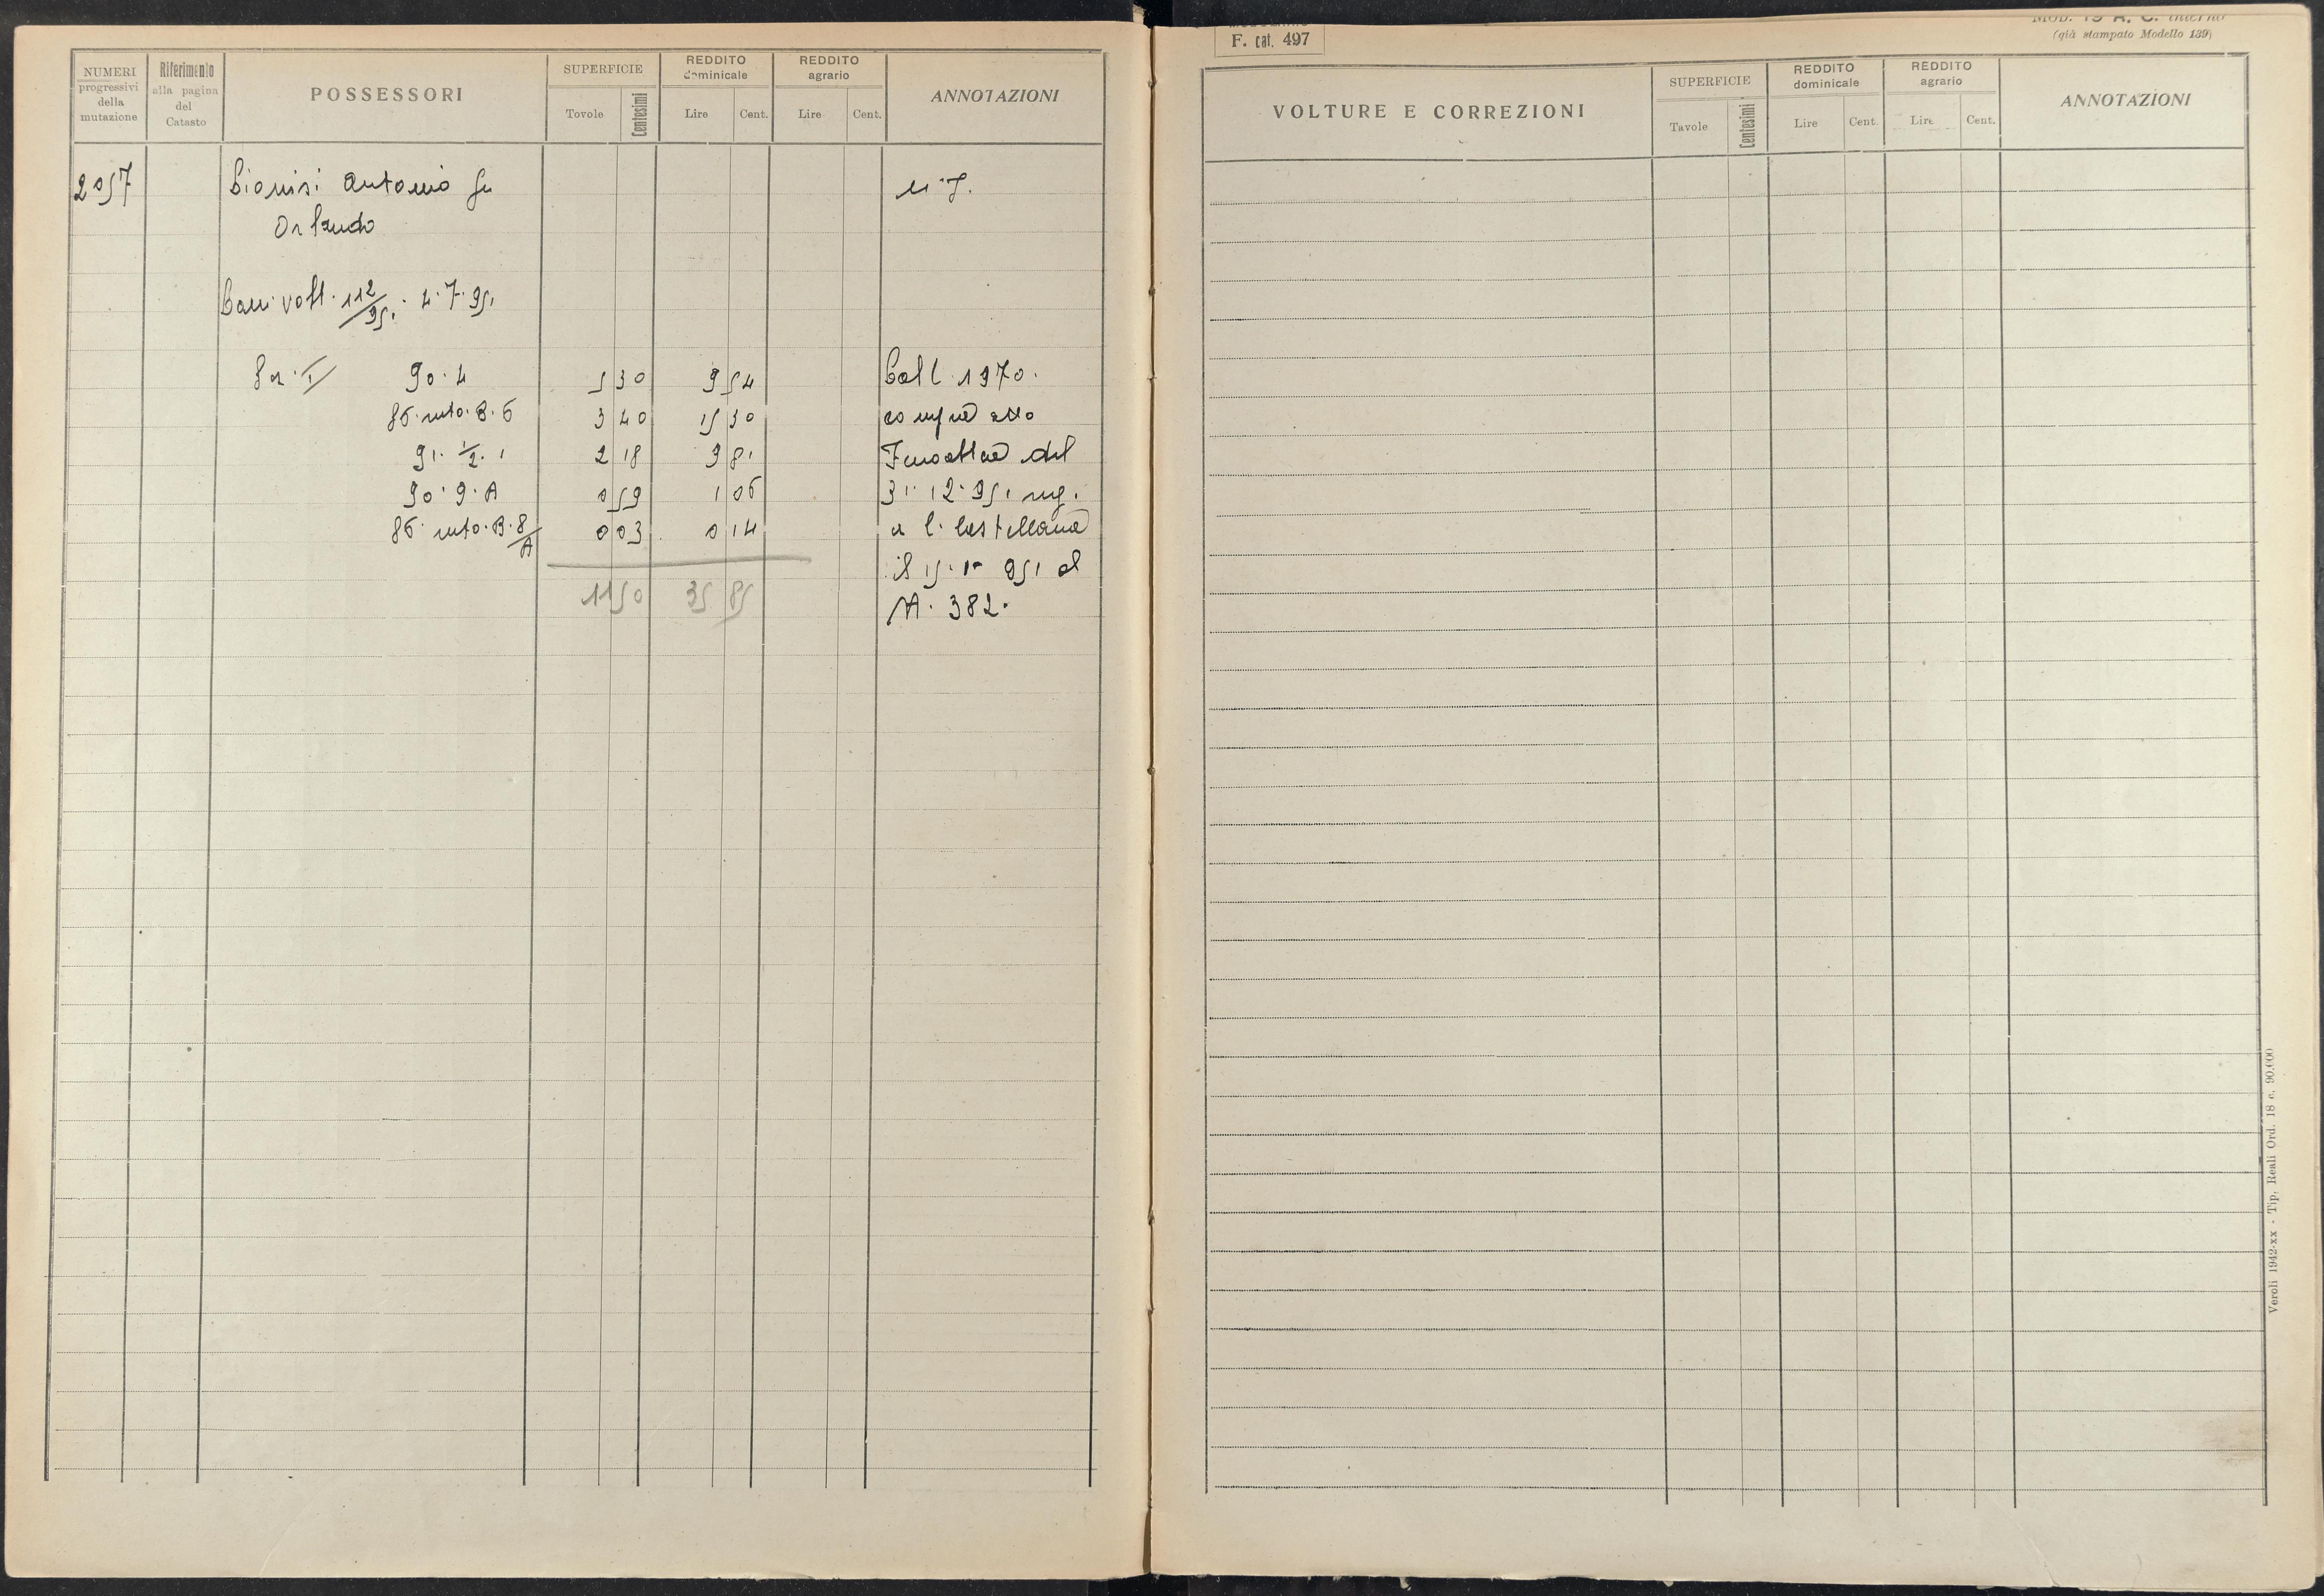 NUMERI
progressivi
della
mutazione
Riferimento
alla pagina
del
Catasto
POSSESSORI
SUPERFICIE
Tovole
Centesimi
REDDITO
dominicale
Lire
Cent.
REDDITO
agrario
Lire
Cent.
ANNOTAZIONI
2057
Antonio fu
Orlando
volt. 112/951. 4.7.951
90.4 5 30 9 54
86. 3 40 15 30
91. 1/2. 1 2 18 9 81
90.9.A 0 59 1 06
86. B. 8/A 0 03 0 14
11 50 35 85
1970.
del
31.12.951 reg.
a C. Castellana
il 951 al
N. 382.
F. cat. 497
MOD. 19 A. C. interno
(già stampato Modello 139)
VOLTURE E CORREZIONI
SUPERFICIE
Tavole
Centesimi
REDDITO
dominicale
Lire
Cent.
REDDITO
agrario
Lire
Cent.
ANNOTAZIONI
Veroli 1942-xx - Tip. Reali Ord. 18 c. 90.000